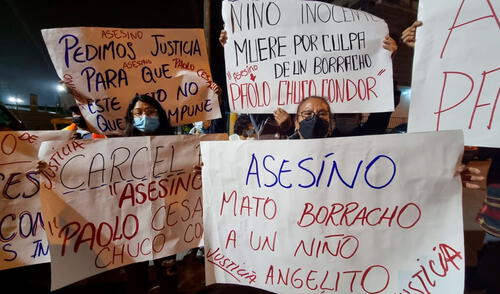 ASESINO
PEDIMOS JUSTICIA
ASESINO
PARA QUE
PAOLO CESAR
ESTE
NO
IMPUNE
NIÑO INOCENTE
MUERE POR CULPA
"Asesino
DE UN BORRACHO
PAOLO CHUCO CONDOR"
Justicia
CARCEL
"ASESINO
PAOLO CESAR
CHUCO CO
ASESÍNO
MATO BORRACHO
A UN NIÑO
JUSTICIA ANGELITO
JUSTICIA